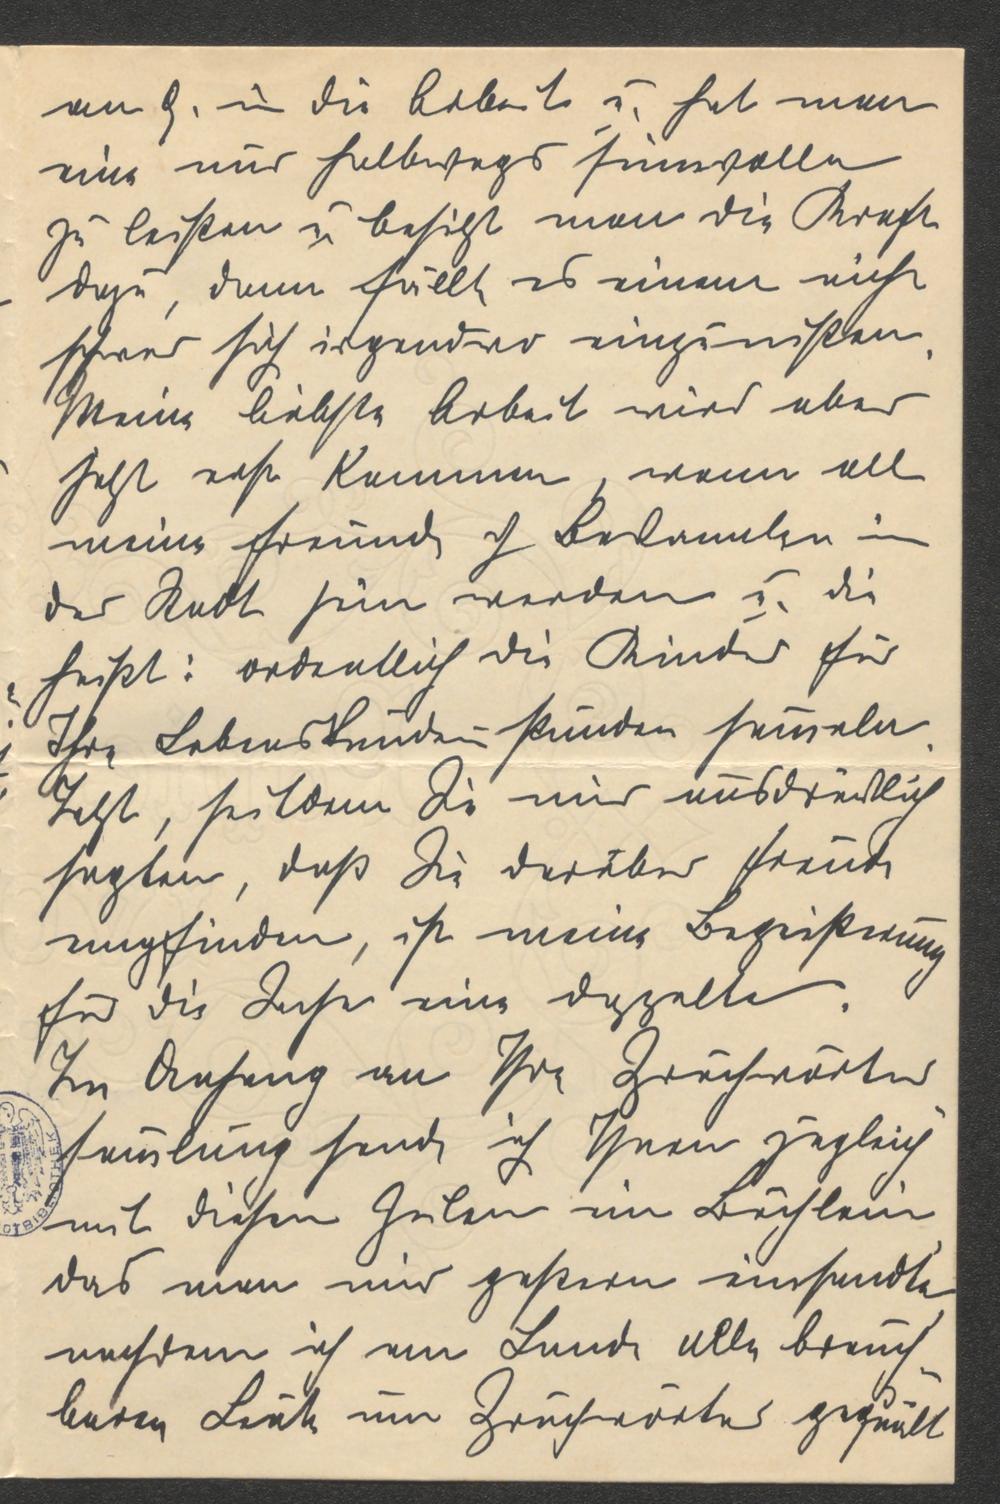 an G. in die Arbeit u. hat man
eine nur halbwegs sinnvolle
zu leisten u. besitzt man die Kraft
dazu, dann fällt es einem nicht
schwer sich irgendwo einzunisten.
Meine liebste Arbeit wird aber
jetzt erst kommen, wenn all
meine Freunde & Bekannten in
der Stadt sein werden u. die
heißt: ordentlich die Kinder für
Ihre Lebenskunden-Stunden sam̅eln.
Jetzt, seitdem Sie mir ausdrücklich
sagten, daß Sie darüber Freude
empfinden, ist meine Begeisterung
für die Sache eine doppelte.
Im Anhang an Ihre Spruchwörter
sam̅lung sende ich Ihnen zugleich
mit diesen Zeilen ein Büchlein,
das man mir gestern einsandte,
nachdem ich am Lande alle brauch-
baren Leute um Spruchwörter gequält